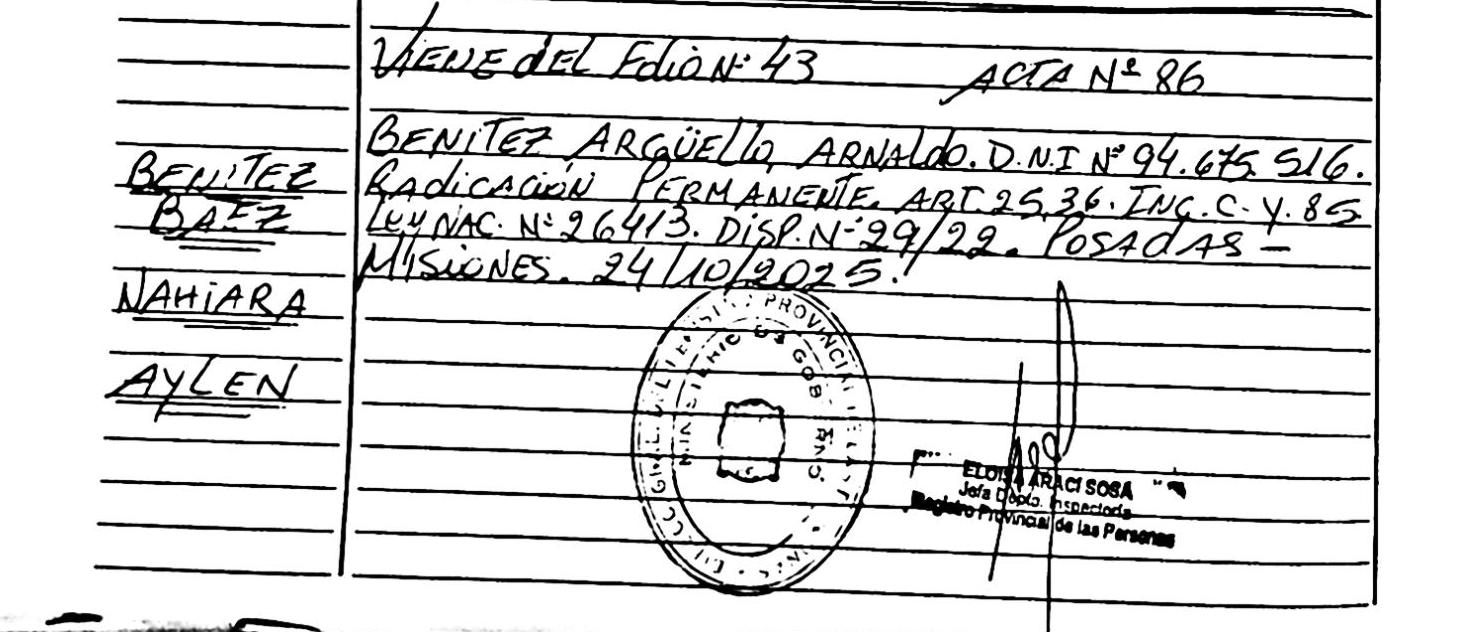 VIENE DEL FOLIO Nº 43 ACTA Nº 86
BENITEZ ARGÜELLO, ARNALDO. D.N.I Nº 94.675.516.
RADICACIÓN PERMANENTE. ART. 25, 36. INC. C. Y. 85
LEY NAC. Nº 26413. DISP. Nº 29/22. POSADAS –
MISIONES. 24/10/2025.
BENITEZ
BAEZ
NAHIARA
AYLEN
PROVINCIAL DE LAS
MINISTERIO DE GOBIERNO
ELOISA ARACI SOSA
Jefa Dpto. Inspectoria
Registro Provincial de las Personas